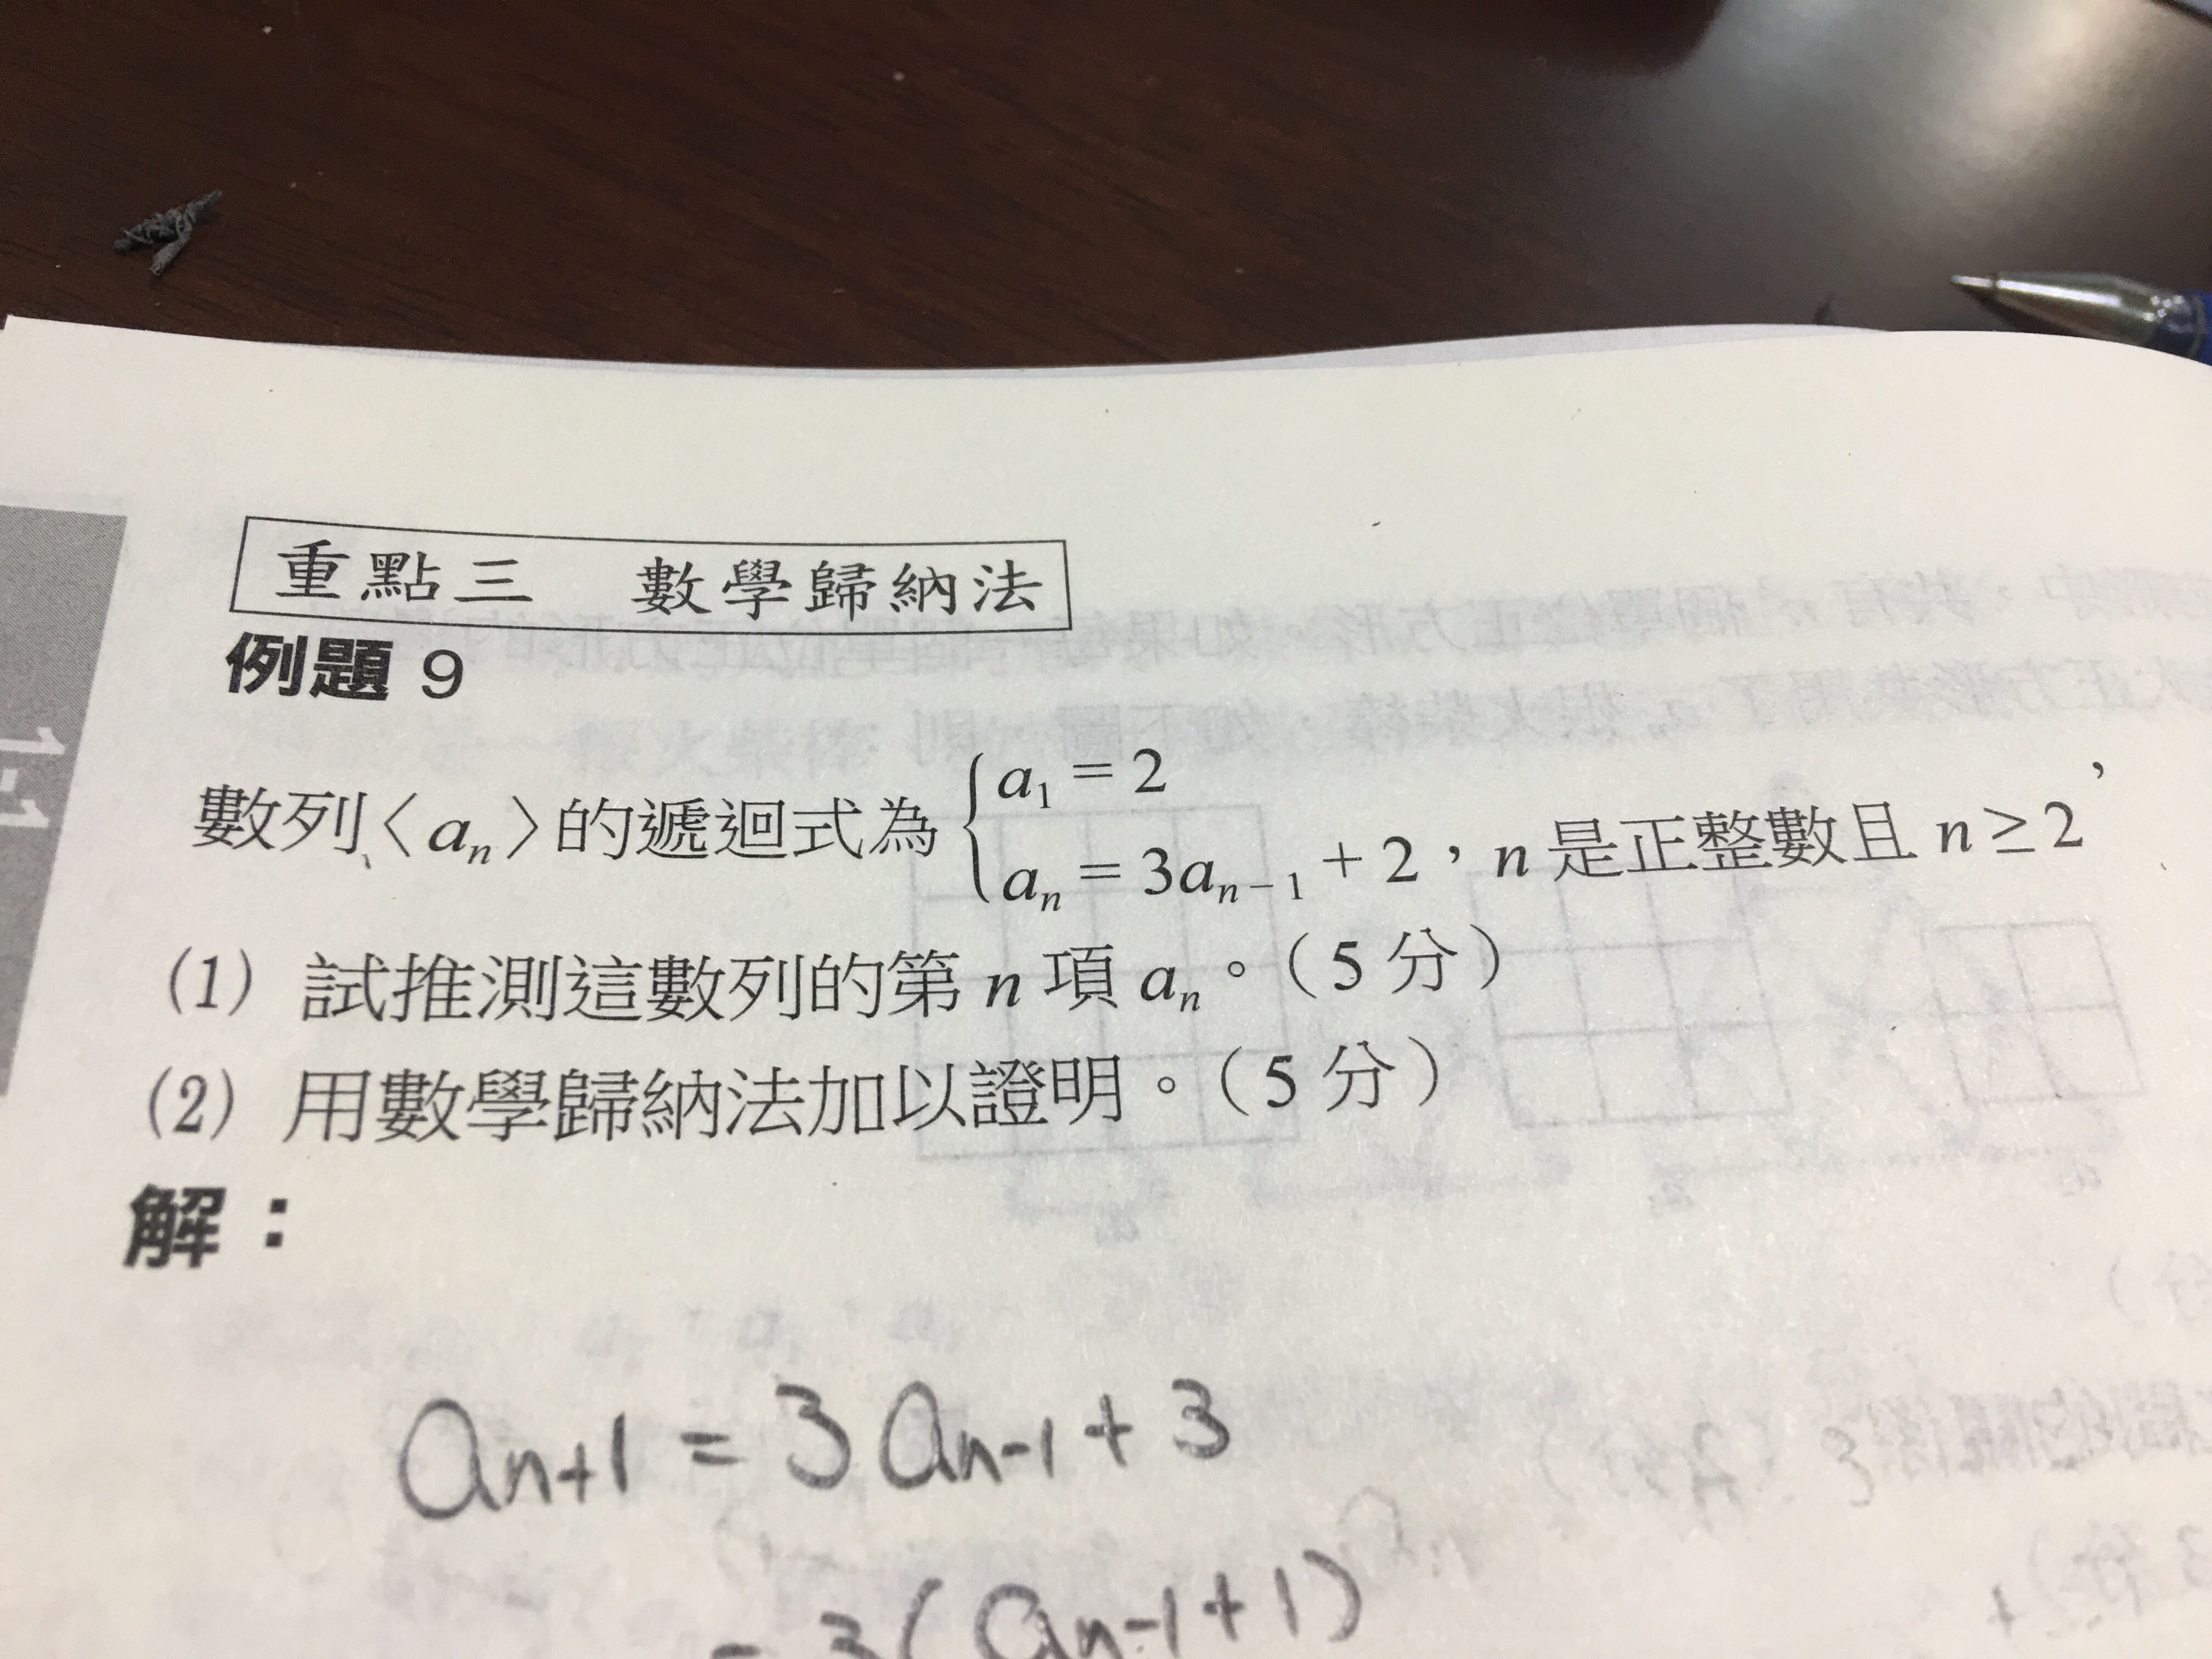 重點三 數學歸納法
例題 9
數列〈aₙ〉的遞迴式為 { a₁ = 2
aₙ = 3aₙ₋₁ + 2，n 是正整數且 n ≥ 2，
(1) 試推測這數列的第 n 項 aₙ。（5 分）
(2) 用數學歸納法加以證明。（5 分）
解：
an+1 = 3an-1 + 3
= 3(an-1+1)